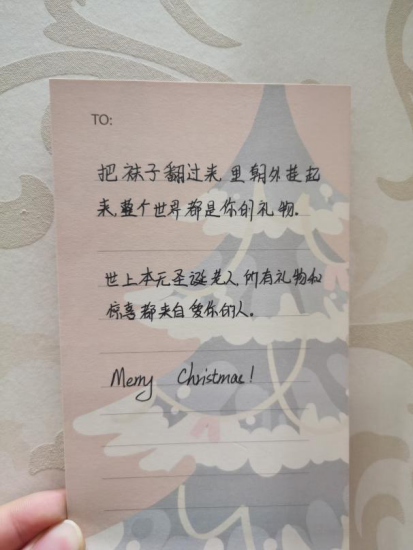 TO:
把袜子翻过来里朝外挂起
来,整个世界都是你的礼物。
世上本无圣诞老人,所有礼物和
惊喜都来自爱你的人。
Merry Christmas!